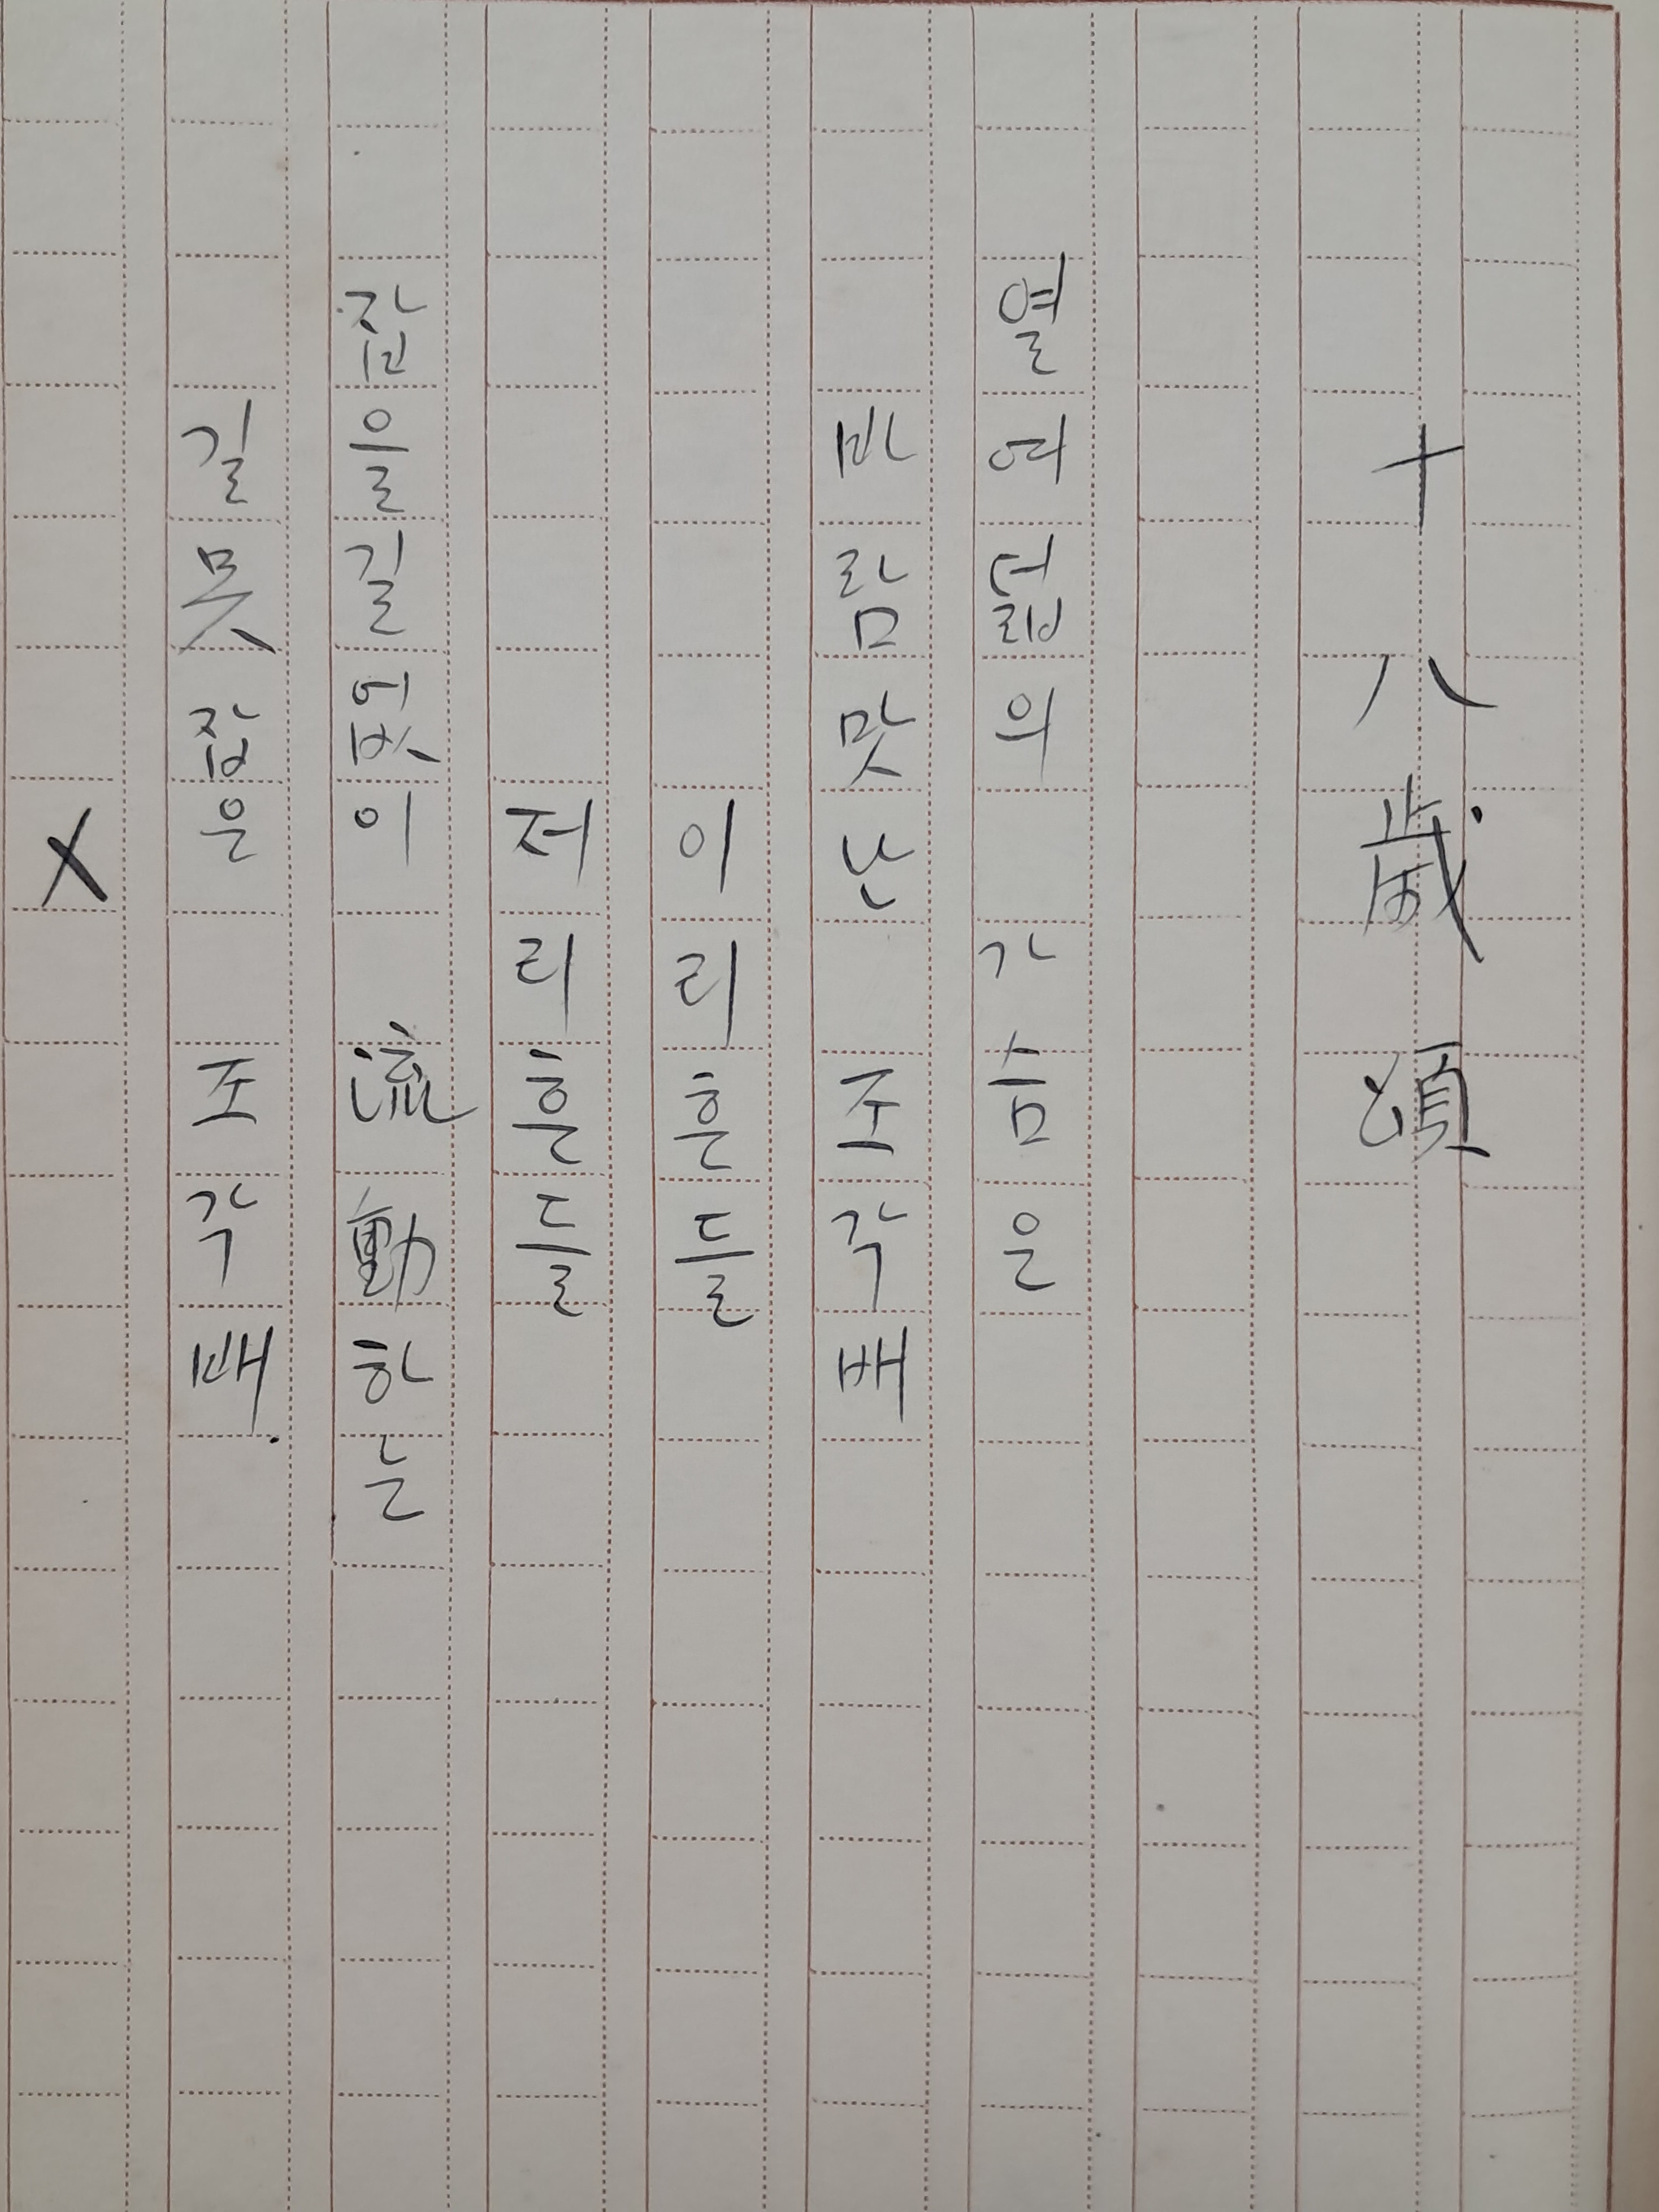 十八歲頌
열여덟의 가슴은
바람맞난 조각배
이리흔들
저리흔들
잡을길없이 流動하는
길못잡은 조각배.
X